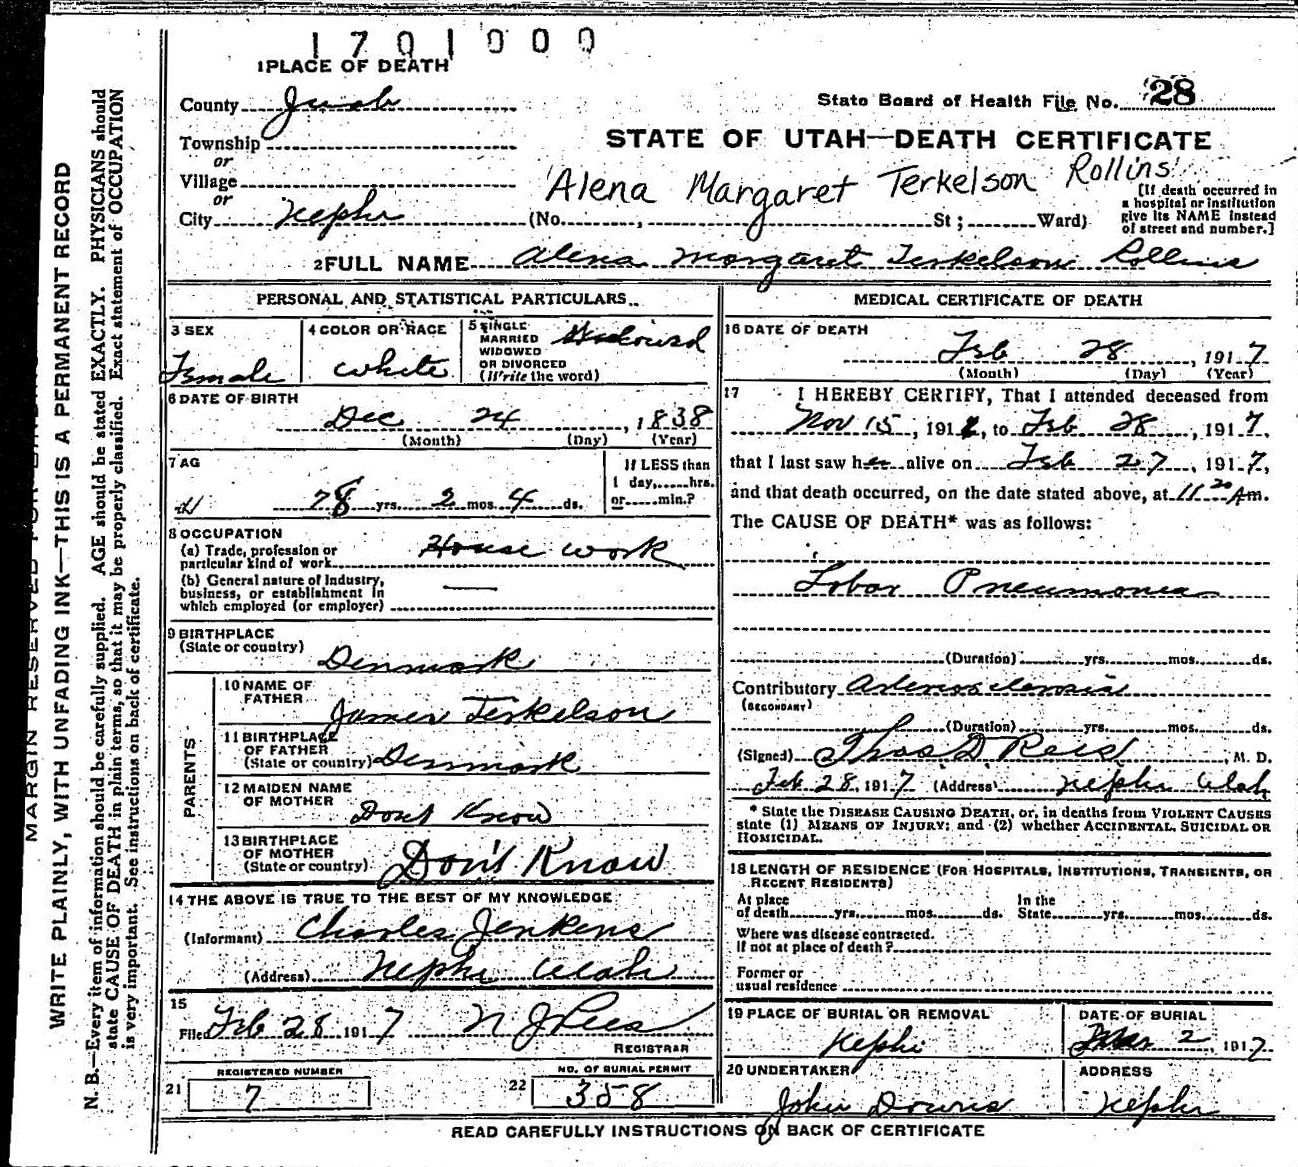 1701000
1 PLACE OF DEATH
County Juab
State Board of Health File No. 28
Township
or
Village
or
City Nephi
STATE OF UTAH—DEATH CERTIFICATE
Alena Margaret Terkelson Rollins
(No. , St ; Ward)
[If death occurred in
a hospital or institution
give its NAME instead
of street and number.]
2 FULL NAME Alena Margaret Terkelson Rollins
PERSONAL AND STATISTICAL PARTICULARS
3 SEX
Female
4 COLOR OR RACE
white
5 SINGLE
MARRIED
WIDOWED
OR DIVORCED
(Write the word)
Widowed
6 DATE OF BIRTH
Dec 24, 1838
(Month) (Day) (Year)
7 AG
78 yrs. 2 mos. 4 ds.
If LESS than
1 day, hrs.
or min.?
8 OCCUPATION
(a) Trade, profession or
particular kind of work House work
(b) General nature of Industry,
business, or establishment in
which employed (or employer)
9 BIRTHPLACE
(State or country) Denmark
PARENTS
10 NAME OF
FATHER James Terkelson
11 BIRTHPLACE
OF FATHER
(State or country) Denmark
12 MAIDEN NAME
OF MOTHER Dont Know
13 BIRTHPLACE
OF MOTHER
(State or country) Don't Know
14 THE ABOVE IS TRUE TO THE BEST OF MY KNOWLEDGE
(Informant) Charles Jenkins
(Address) Nephi Utah
15
Filed Feb 28 1917 N J Rees
REGISTRAR
21 REGISTERED NUMBER
7
22 NO. OF BURIAL PERMIT
358
MEDICAL CERTIFICATE OF DEATH
16 DATE OF DEATH
Feb 28, 1917
(Month) (Day) (Year)
17 I HEREBY CERTIFY, That I attended deceased from
Nov 15, 191 , to Feb 28, 1917,
that I last saw her alive on Feb 27, 1917,
and that death occurred, on the date stated above, at 11 20 Am.
The CAUSE OF DEATH* was as follows:
Lobar Pneumonia
(Duration) yrs. mos. ds.
Contributory Arteriosclerosis
(SECONDARY)
(Duration) yrs. mos. ds.
(Signed) Thos D. Rees, M. D.
Feb 28, 1917 (Address) Nephi Utah
* State the DISEASE CAUSING DEATH, or, in deaths from VIOLENT CAUSES
state (1) MEANS OF INJURY; and (2) whether ACCIDENTAL, SUICIDAL OR
HOMICIDAL.
18 LENGTH OF RESIDENCE (FOR HOSPITALS, INSTITUTIONS, TRANSIENTS, OR
RECENT RESIDENTS)
At place
of death yrs. mos. ds.
In the
State yrs. mos. ds.
Where was disease contracted.
If not at place of death?
Former or
usual residence
19 PLACE OF BURIAL OR REMOVAL
Nephi
DATE OF BURIAL
Mar 2, 1917
20 UNDERTAKER
John Downs
ADDRESS
Nephi
READ CAREFULLY INSTRUCTIONS ON BACK OF CERTIFICATE
MARGIN RESERVED FOR
WRITE PLAINLY, WITH UNFADING INK—THIS IS A PERMANENT RECORD
N. B.—Every item of information should be carefully supplied. AGE should be stated EXACTLY. PHYSICIANS should
state CAUSE OF DEATH in plain terms, so that it may be properly classified. Exact statement of OCCUPATION
is very important. See instructions on back of certificate.